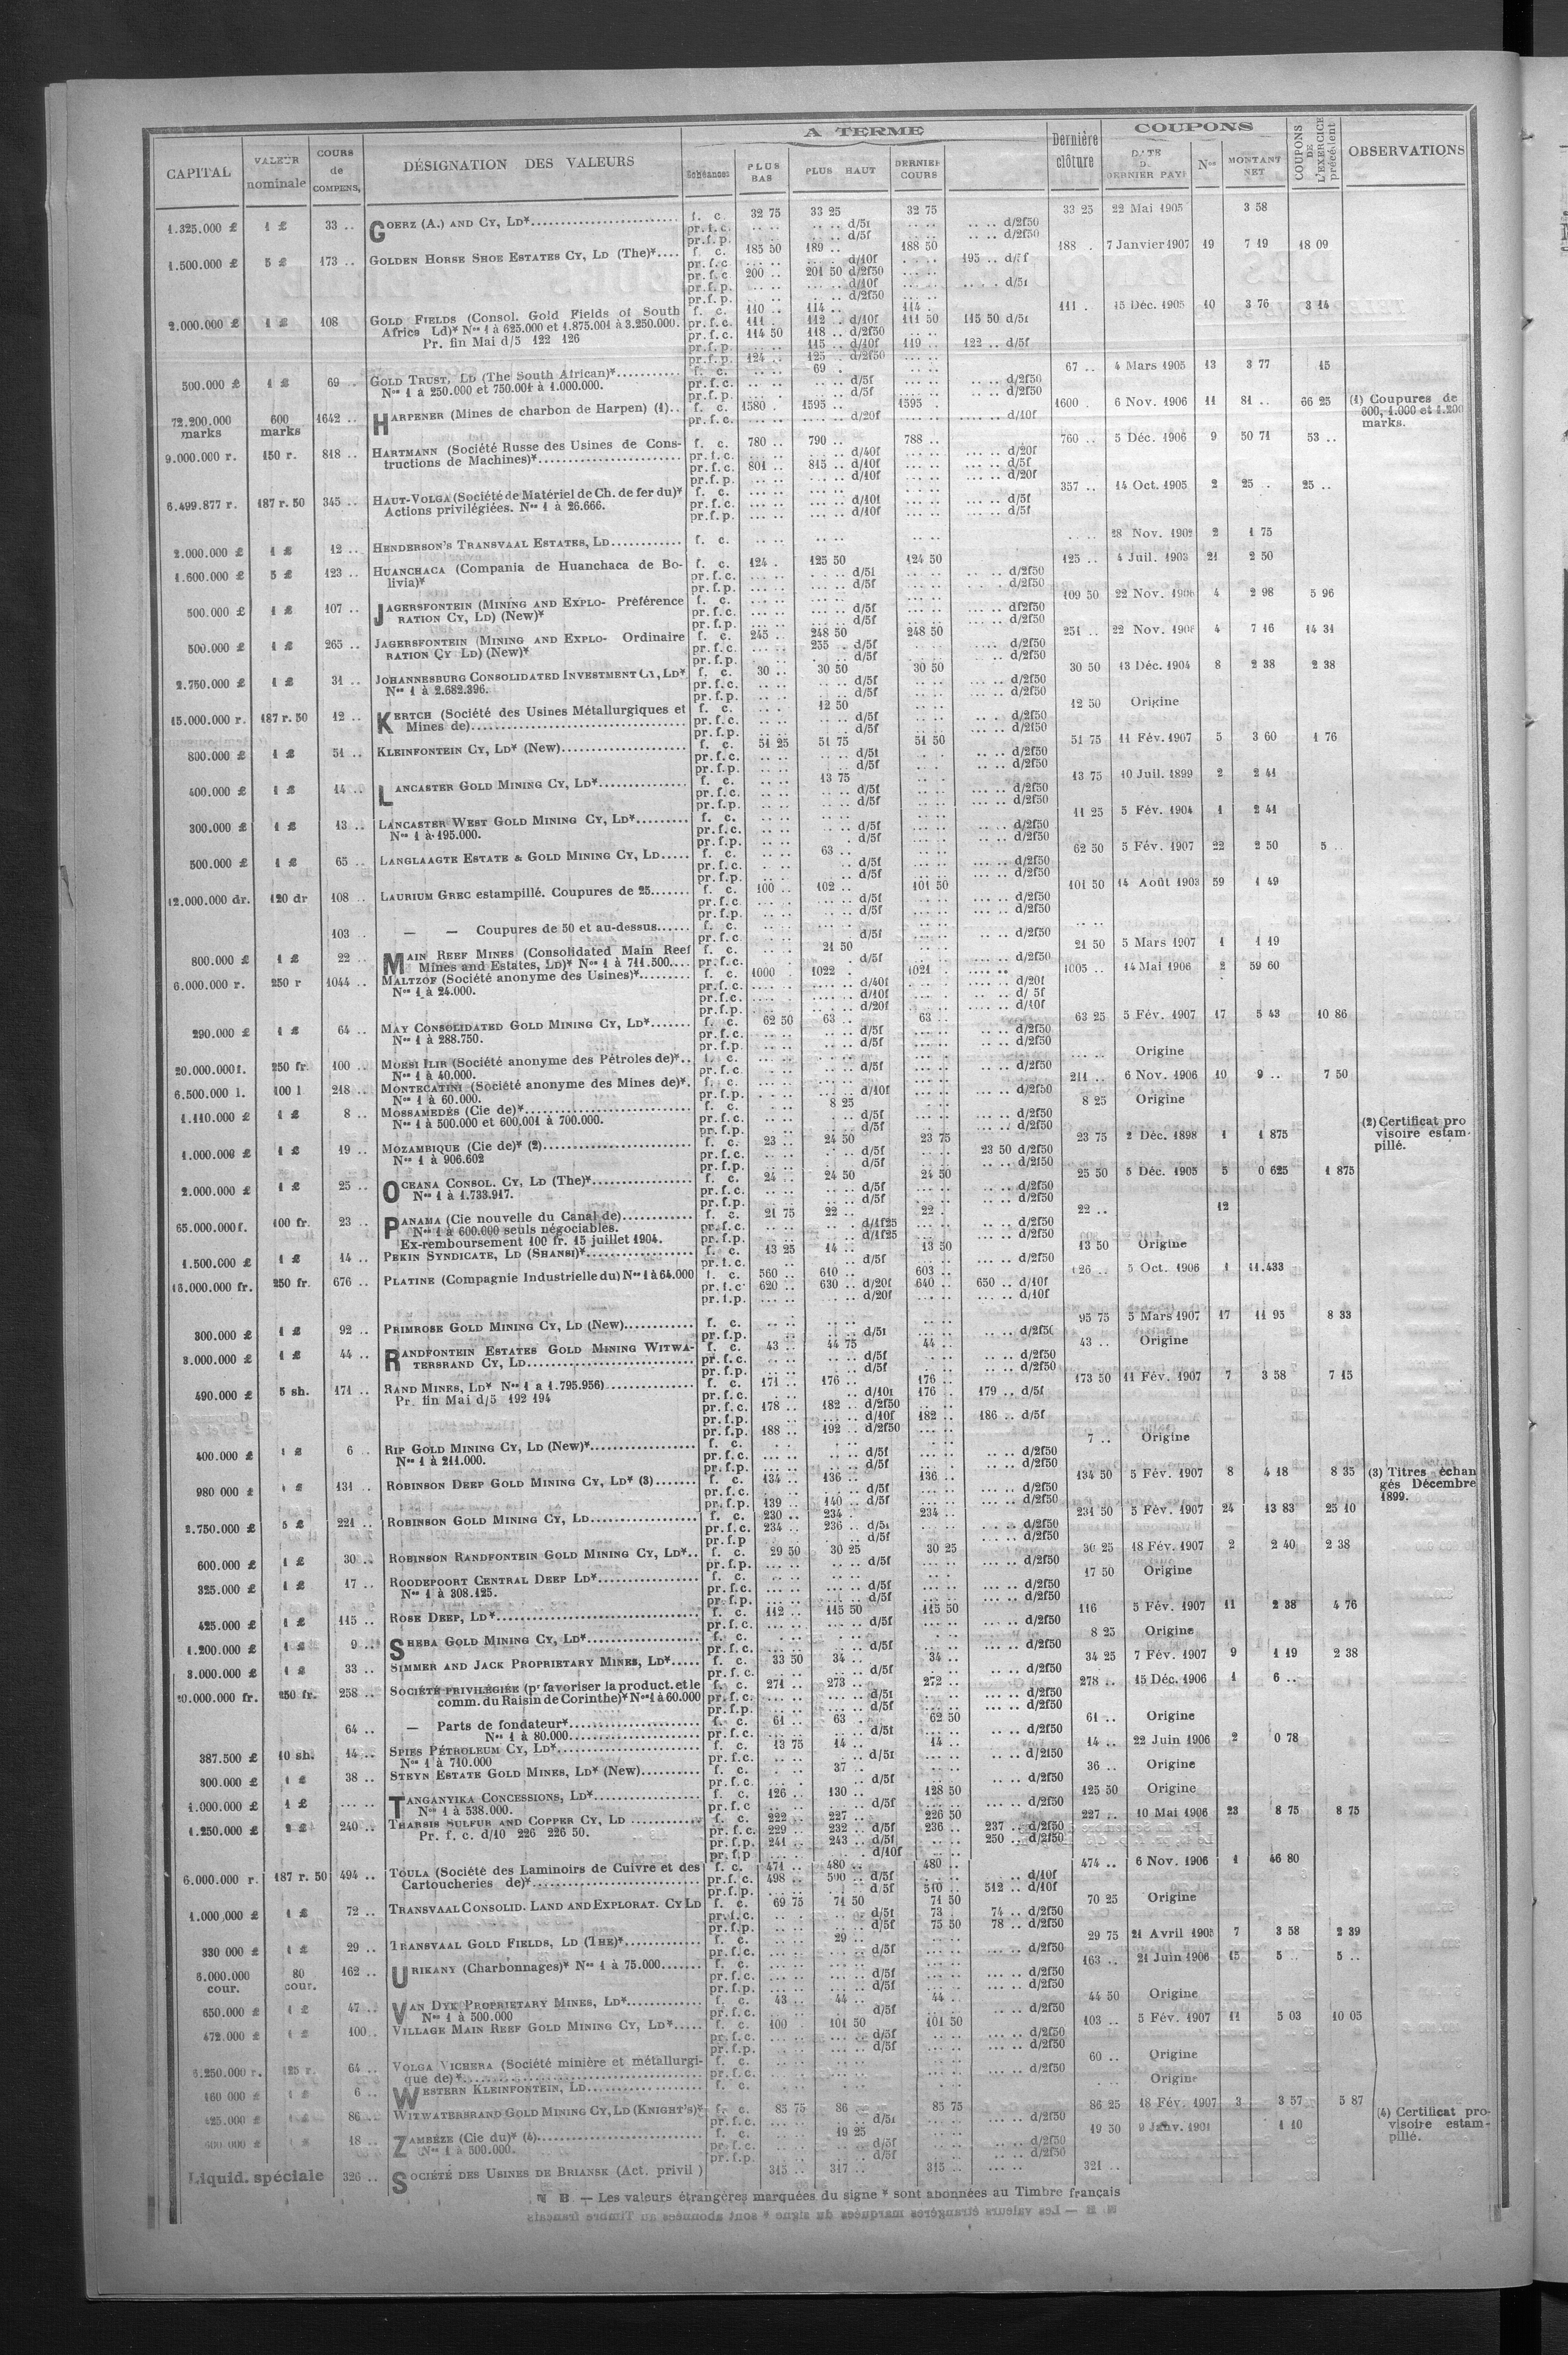 CAPITAL VALEUR nominale COURS de COMPENS. DÉSIGNATION DES VALEURS A TERME PLUS BAS PLUS HAUT DERNIER COURS Dernière clôture COUPONS DATE DERNIER PAYT Nos MONTANT NET COUPONS DE L'EXERCICE précédent OBSERVATIONS
1.325.000 £ 1 £ 33 .. GOERZ (A.) AND CY, LD* f. c. 32 75 33 25 32 75 33 25 22 Mai 1905 3 58
pr. f. c. .. .. d/5f .. .. d/2f50
pr. f. p. .. .. d/5f .. .. d/2f50
1.500.000 £ 5 £ 173 .. GOLDEN HORSE SHOE ESTATES CY, LD (The)* f. c. 185 50 189 .. 188 50 188 . 7 Janvier 1907 19 7 19 18 09
pr. f. c. d/10f 195 .. d/5f
pr. f. c. 200 .. 201 50 d/2f50
pr. f. p. d/10f d/5f
pr. f. p. d/2f50
2.000.000 £ 1 £ 108 GOLD FIELDS (Consol. Gold Fields of South f. c. 110 .. 114 .. 114 . 111 . 15 Déc. 1905 10 3 76 3 14
Africa Ld)* Nos 1 à 625.000 et 1.875.001 à 3.250.000. pr. f. c. 111 . 112 .. d/10f 111 50 115 50 d/5f
Pr. fin Mai d/5 122 126 pr. f. c. 114 50 118 .. d/2f50
pr. f. p. 115 .. d/10f 119 .. 122 .. d/5f
pr. f. p. 124 .. 125 . d/2f50
500.000 £ 1 £ 69 .. GOLD TRUST, LD (The South African)* f. c. 69 . 67 .. 4 Mars 1905 13 3 77 15
Nos 1 à 250.000 et 750.001 à 1.000.000. pr. f. c. d/5f d/2f50
pr. f. p. d/5f d/2f50
72.200.000 marks 600 marks 1642 .. HARPENER (Mines de charbon de Harpen) (1).. f. c. 1580 . 1595 .. 1595 . 1600 . 6 Nov. 1906 11 81 .. 66 25 (1) Coupures de
pr. f. c. d/20f d/10f 600, 1.000 et 1.200
marks.
9.000.000 r. 150 r. 818 .. HARTMANN (Société Russe des Usines de Cons- f. c. 780 .. 790 .. 788 .. 760 .. 5 Déc. 1906 9 50 71 53 ..
tructions de Machines)* pr. f. c. d/40f d/20f
pr. f. c. 801 .. 815 .. d/10f d/5f
pr. f. p. d/10f d/20f
6.499.877 r. 187 r. 50 345 .. HAUT-VOLGA (Société de Matériel de Ch. de fer du)* f. c. 357 .. 14 Oct. 1905 2 25 . 25 ..
Actions privilégiées. Nos 1 à 26.666. pr. f. c. d/10f d/5f
pr. f. p. d/10f d/5f
2.000.000 £ 1 £ 12 .. HENDERSON'S TRANSVAAL ESTATES, LD f. c. 28 Nov. 1902 2 1 75
1.600.000 £ 5 £ 123 .. HUANCHACA (Compania de Huanchaca de Bo- f. c. 124 . 125 50 124 50 125 .. 4 Juil. 1903 21 2 50
livia)* pr. f. c. d/5f d/2f50
pr. f. p. d/5f d/2f50
500.000 £ 1 £ 107 .. JAGERSFONTEIN (MINING AND EXPLO- Préférence f. c. 109 50 22 Nov. 1906 4 2 98 5 96
RATION CY, LD) (New)* pr. f. c. d/5f d/2f50
pr. f. p. d/5f d/2f50
500.000 £ 1 £ 265 .. JAGERSFONTEIN (MINING AND EXPLO- Ordinaire f. c. 245 .. 248 50 248 50 251 .. 22 Nov. 1906 4 7 16 14 31
RATION CY LD) (New)* pr. f. c. 255 . d/5f d/2f50
pr. f. p. d/5f d/2f50
2.750.000 £ 1 £ 31 .. JOHANNESBURG CONSOLIDATED INVESTMENT CY, LD* f. c. 30 .. 30 50 30 50 30 50 13 Déc. 1904 8 2 38 2 38
Nos 1 à 2.682.396. pr. f. c. d/5f d/2f50
pr. f. p. d/5f d/2f50
15.000.000 r. 187 r. 50 12 .. KERTCH (Société des Usines Métallurgiques et f. c. 12 50 12 50 Origine
Mines de) pr. f. c. d/5f d/2f50
pr. f. p. d/5f d/2f50
800.000 £ 1 £ 51 .. KLEINFONTEIN CY, LD* (New) f. c. 51 25 51 75 51 50 51 75 11 Fév. 1907 5 3 60 1 76
pr. f. c. d/5f d/2f50
pr. f. p. d/5f d/2f50
400.000 £ 1 £ 14 .. LANCASTER GOLD MINING CY, LD* f. c. 13 75 13 75 10 Juil. 1899 2 2 41
pr. f. c. d/5f d/2f50
pr. f. p. d/5f d/2f50
300.000 £ 1 £ 13 .. LANCASTER WEST GOLD MINING CY, LD* f. c. 11 25 5 Fév. 1904 1 2 41
Nos 1 à 195.000. pr. f. c. d/5f d/2f50
pr. f. p. d/5f d/2f50
500.000 £ 1 £ 65 .. LANGLAAGTE ESTATE & GOLD MINING CY, LD f. c. 63 .. 62 50 5 Fév. 1907 22 2 50 5 ..
pr. f. c. d/5f d/2f50
pr. f. p. d/5f d/2f50
12.000.000 dr. 120 dr 108 .. LAURIUM GREC estampillé. Coupures de 25 f. c. 100 .. 102 .. 101 50 101 50 14 Août 1903 59 1 49
pr. f. c. d/5f d/2f50
pr. f. p. d/5f d/2f50
103 — — Coupures de 50 et au-dessus f. c.
pr. f. c. d/5f d/2f50
800.000 £ 1 £ 22 .. MAIN REEF MINES (Consolidated Main Reef f. c. 21 50 21 50 5 Mars 1907 1 1 19
Mines and Estates, LD)* Nos 1 à 711.500 pr. f. c. d/5f d/2f50
6.000.000 r. 250 r 1044 .. MALTZOF (Société anonyme des Usines)* f. c. 1000 . 1022 . 1021 . 1005 .. 14 Mai 1906 2 59 60
Nos 1 à 24.000. pr. f. c. d/40f d/20f
pr. f. c. d/10f d/ 5f
pr. f. p. d/20f d/10f
290.000 £ 1 £ 64 .. MAY CONSOLIDATED GOLD MINING CY, LD* f. c. 62 50 63 .. 63 .. 63 25 5 Fév. 1907 17 5 43 10 86
Nos 1 à 288.750. pr. f. c. d/5f d/2f50
pr. f. p. d/5f d/2f50
20.000.000 f. 250 fr. 100 .. MORSI ILIR (Société anonyme des Pétroles de)* f. c. Origine
Nos 1 à 40.000. pr. f. c. d/5f d/2f50
6.500.000 l. 100 l 218 .. MONTECATINI (Société anonyme des Mines de)*. f. c. 211 .. 6 Nov. 1906 10 9 .. 7 50
Nos 1 à 60.000. pr. f. c. d/10f d/2f50
1.110.000 £ 1 £ 8 .. MOSSAMEDÈS (Cie de)* f. c. 8 25 8 25 Origine
Nos 1 à 500.000 et 600.001 à 700.000. pr. f. c. d/5f d/2f50
pr. f. p. d/5f d/2f50
1.000.000 £ 1 £ 19 .. MOZAMBIQUE (Cie de)* (2) f. c. 23 .. 24 50 23 75 23 75 2 Déc. 1898 1 1 875 (2) Certificat pro
Nos 1 à 906.602 pr. f. c. d/5f 23 50 d/2f50 visoire estam-
pr. f. p. d/5f d/2f50 pillé.
2.000.000 £ 1 £ 25 .. OCEANA CONSOL. CY, LD (The)* f. c. 24 .. 24 50 24 50 25 50 5 Déc. 1905 5 0 625 1 875
Nos 1 à 1.733.917. pr. f. c. d/5f d/2f50
pr. f. p. d/5f d/2f50
65.000.000 f. 100 fr. 23 .. PANAMA (Cie nouvelle du Canal de) f. c. 21 75 22 .. 22 . 22 .. 12
Nos 1 à 600.000 seuls négociables. pr. f. c. d/1f25 d/2f50
Ex-remboursement 100 fr. 15 juillet 1904. pr. f. p. d/1f25 d/2f50
1.500.000 £ 1 £ 14 .. PEKIN SYNDICATE, LD (SHANSI)* f. c. 13 25 14 .. 13 50 13 50 Origine
pr. f. c. d/5f d/2f50
16.000.000 fr. 250 fr. 676 .. PLATINE (Compagnie Industrielle du) Nos 1 à 64.000 f. c. 560 .. 610 .. 603 .. 5 Oct. 1906 1 11.433
pr. f. c 620 .. 630 .. d/20f 640 .. 650 .. d/10f
pr. f. p. d/20f d/10f
300.000 £ 1 £ 92 .. PRIMROSE GOLD MINING CY, LD (New) f. c. 95 75 5 Mars 1907 17 11 95 8 33
pr. f. p. d/5f d/2f50
3.000.000 £ 1 £ 44 .. RANDFONTEIN ESTATES GOLD MINING WITWA- f. c. 43 .. 44 75 44 .. 43 .. Origine
TERSRAND CY, LD pr. f. c. d/5f d/2f50
pr. f. p. d/5f d/2f50
490.000 £ 5 sh. 171 .. RAND MINES, LD* Nos 1 a 1.795.956) f. c. 171 .. 176 .. 176 .. 173 50 11 Fév. 1907 7 3 58 7 15
Pr. fin Mai d/5 192 194 pr. f. c. d/10f 176 . 179 .. d/5f
pr. f. c. 178 .. 182 .. d/2f50
pr. f. p. d/10f 182 .. 186 .. d/5f
pr. f. p. 188 .. 192 .. d/2f50
400.000 £ 1 £ 6 .. RIP GOLD MINING CY, LD (New)* f. c. 7 .. Origine
Nos 1 à 211.000. pr. f. c. d/5f d/2f50
pr. f. p. d/5f d/2f50
980 000 £ 1 £ 131 .. ROBINSON DEEP GOLD MINING CY, LD* (3) f. c. 134 .. 136 .. 136 .. 134 50 5 Fév. 1907 8 4 18 8 35 (3) Titres échan
pr. f. c. d/5f d/2f50 gés Décembre
pr. f. p. 139 .. 140 .. d/5f d/2f50 1899.
2.750.000 £ 5 £ 221 .. ROBINSON GOLD MINING CY, LD f. c. 230 .. 234 . 234 .. 231 50 5 Fév. 1907 24 13 83 25 10
pr. f. c. 234 .. 236 .. d/5f d/2f50
pr. f. p d/5f d/2f50
600.000 £ 1 £ 30 .. ROBINSON RANDFONTEIN GOLD MINING CY, LD* f. c. 29 50 30 25 30 25 30 25 18 Fév. 1907 2 2 40 2 38
pr. f. p. d/5f d/2f50
325.000 £ 1 £ 17 .. ROODEPOORT CENTRAL DEEP LD* f. c. 17 50 Origine
Nos 1 à 308.125. pr. f. c. d/5f d/2f50
pr. f. p. d/5f d/2f50
425.000 £ 1 £ 115 .. ROSE DEEP, LD* f. c. 112 .. 115 50 115 50 116 5 Fév. 1907 11 2 38 4 76
pr. f. c. d/5f d/2f50
1.200.000 £ 1 £ 9 .. SHEBA GOLD MINING CY, LD* f. c. 8 25 Origine
pr. f. c. d/5f d/2f50
3.000.000 £ 1 £ 33 .. SIMMER AND JACK PROPRIETARY MINES, LD* f. c. 33 50 34 .. 34 .. 34 25 7 Fév. 1907 9 1 19 2 38
pr. f. c. d/5f d/2f50
10.000.000 fr. 250 fr. 258 .. SOCIÉTÉ PRIVILÉGIÉE (pr favoriser la product. et le f. c. 271 .. 273 .. 272 .. 278 .. 15 Déc. 1906 1 6 ..
comm. du Raisin de Corinthe)* Nos 1 à 60.000 pr. f. c. d/5f d/2f50
pr. f. p. d/5f d/2f50
64 .. — Parts de fondateur* f. c. 61 .. 63 . 62 50 61 .. Origine
Nos 1 à 80.000 pr. f. c. d/5f d/2f50
387.500 £ 10 sh. 14 .. SPIES PÉTROLEUM CY, LD* f. c. 13 75 14 .. 14 .. 14 .. 22 Juin 1906 2 0 78
Nos 1 à 710.000 pr. f. c. d/5f d/2f50
300.000 £ 1 £ 38 .. STEYN ESTATE GOLD MINES, LD* (New) f. c. 37 .. 36 .. Origine
pr. f. c. d/5f d/2f50
1.000.000 £ 1 £ TANGANYIKA CONCESSIONS, LD* f. c. 126 .. 130 .. 128 50 125 50 Origine
Nos 1 à 538.000. pr. f. c d/5f d/2f50
1.250.000 £ 2 £ 240 .. THARSIS SULFUR AND COPPER CY, LD f. c. 222 .. 227 .. 226 50 227 .. 10 Mai 1906 23 8 75 8 75
Pr. f. c. d/10 226 226 50. pr. f. c. 229 .. 232 .. d/5f 236 .. 237 .. d/2f50
pr. f. p. 241 .. 243 .. d/5f 250 .. d/2f50
pr. f. p d/10f
6.000.000 r. 187 r. 50 494 .. TOULA (Société des Laminoirs de Cuivre et des f. c. 471 .. 480 .. 480 .. 474 .. 6 Nov. 1906 1 46 80
Cartoucheries de)* pr. f. c. 498 .. 500 .. d/5f d/10f
pr. f. p. d/5f 510 .. 512 .. d/10f
1.000.000 £ 1 £ 72 .. TRANSVAAL CONSOLID. LAND AND EXPLORAT. CY LD f. c. 69 75 71 50 71 50 70 25 Origine
pr. f. c. d/5f 73 . 74 .. d/2f50
pr. f. p. d/5f 75 50 78 .. d/2f50
330 000 £ 1 £ 29 .. TRANSVAAL GOLD FIELDS, LD (THE)* f. c. 29 .. 29 75 21 Avril 1905 7 3 58 2 39
pr. f. c. d/5f d/2f50
6.000.000 cour. 80 cour. 162 .. URIKANY (Charbonnages)* Nos 1 à 75.000 f. c. 163 .. 21 Juin 1906 15 5 .. 5 ..
pr. f. c. d/5f d/2f50
pr. f. p. d/5f d/2f50
650.000 £ 1 £ 47 .. VAN DYK PROPRIETARY MINES, LD* f. c. 43 .. 44 .. 44 .. 44 50 Origine
Nos 1 à 500.000 pr. f. c. d/5f d/2f50
472.000 £ 1 £ 100 .. VILLAGE MAIN REEF GOLD MINING CY, LD* f. c. 100 . 101 50 101 50 103 .. 5 Fév. 1907 11 5 03 10 05
pr. f. c. d/5f d/2f50
pr. f. p. d/5f d/2f50
6.250.000 r. 125 r. 64 .. VOLGA VICHERA (Société minière et métallurgi- f. c. 60 .. Origine
que de)* pr. f. c. d/2f50
160 000 £ 1 £ 6 .. WESTERN KLEINFONTEIN, LD f. c. Origine
425.000 £ 1 £ 86 .. WITWATERSRAND GOLD MINING CY, LD (KNIGHT'S)* f. c. 85 75 86 .. 85 75 86 25 18 Fév. 1907 3 3 57 5 87 (4) Certificat pro-
pr. f. c. d/5f d/2f50 visoire estam-
600.000 £ 1 £ 18 .. ZAMBÈZE (Cie du)* (4) f. c. 19 25 19 50 9 Janv. 1901 1 10 pillé.
Nos 1 à 500.000. pr. f. c. d/5f d/2f50
pr. f. p. d/5f d/2f50
Liquid. spéciale 326 .. SOCIÉTÉ DES USINES DE BRIANSK (Act. privil ) 315 .. 317 .. 315 .. 321 ..
N B — Les valeurs étrangères marquées du signe * sont abonnées au Timbre français